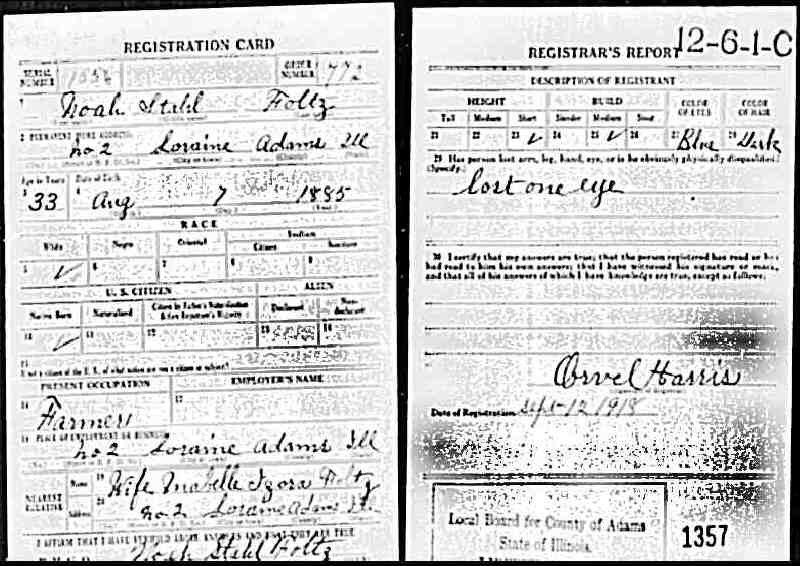 REGISTRATION CARD
SERIAL NUMBER 1356 ORDER NUMBER
Noah Stehl Foltz
2 PERMANENT HOME ADDRESS:
No 2 Loraine Adams Ill
Age in Years Date of Birth
33 Aug 7 1885
RACE
White Negro Oriental Indian
Citizen Noncitizen
5 ✓ 6 7 8 9
U. S. CITIZEN ALIEN
Native Born Naturalized Citizen by Father's Naturalization Before Registrant's Majority Declarant Non-declarant
10 ✓ 11 12 13 14
15
If not a citizen of the U. S., of what nation are you a citizen or subject?
PRESENT OCCUPATION EMPLOYER'S NAME
16 17
Farmer
18 PLACE OF EMPLOYMENT OR BUSINESS:
No 2 Loraine Adams Ill
NEAREST RELATIVE
Name 19 Wife Mabelle Izora Foltz
Address 20 No 2 Loraine Adams Ill
I AFFIRM THAT I HAVE VERIFIED ABOVE ANSWERS AND THAT THEY ARE TRUE
Noah Stehl Foltz
REGISTRAR'S REPORT 12-6-1-C
DESCRIPTION OF REGISTRANT
HEIGHT BUILD COLOR OF EYES COLOR OF HAIR
Tall Medium Short Slender Medium Stout
21 22 23 ✓ 24 25 ✓ 26 27 Blue 28 Dark
29 Has person lost arm, leg, hand, eye, or is he obviously physically disqualified?
(Specify.)
lost one eye
30 I certify that my answers are true; that the person registered has read or has
had read to him his own answers; that I have witnessed his signature or mark,
and that all of his answers of which I have knowledge are true, except as follows:
Orvel Harris
Date of Registration Sept-12 1918
Local Board for County of Adams
State of Illinois.
1357